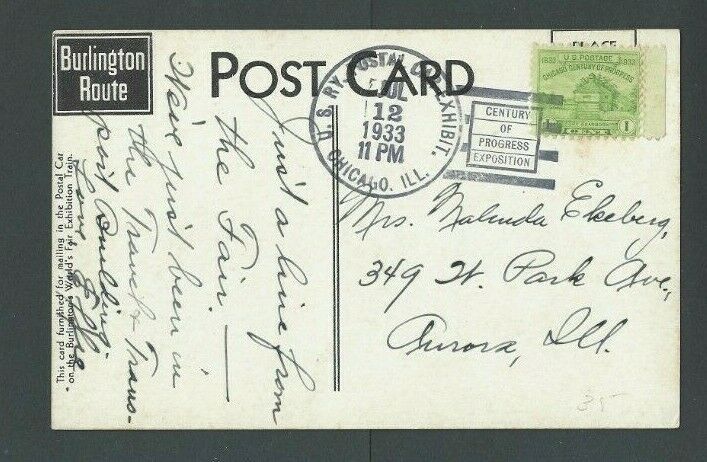 Burlington
Route
POST CARD
PLACE
U.S. RY. POSTAL CAR EXHIBIT.
JUL
12
1933
11 PM
CHICAGO, ILL.
CENTURY
OF
PROGRESS
EXPOSITION
1833 1933
U.S. POSTAGE
CHICAGO CENTURY OF PROGRESS
1 CENT 1
Just a line from
the Fair. —
Have just been in
the Travel & Trans-
port Building.
Love Effie
Mrs. Malinda Ekeberg,
349 W. Park Ave.,
Aurora, Ill.
This card furnished for mailing in the Postal Car
on the Burlington's World's Fair Exhibition Train.
35